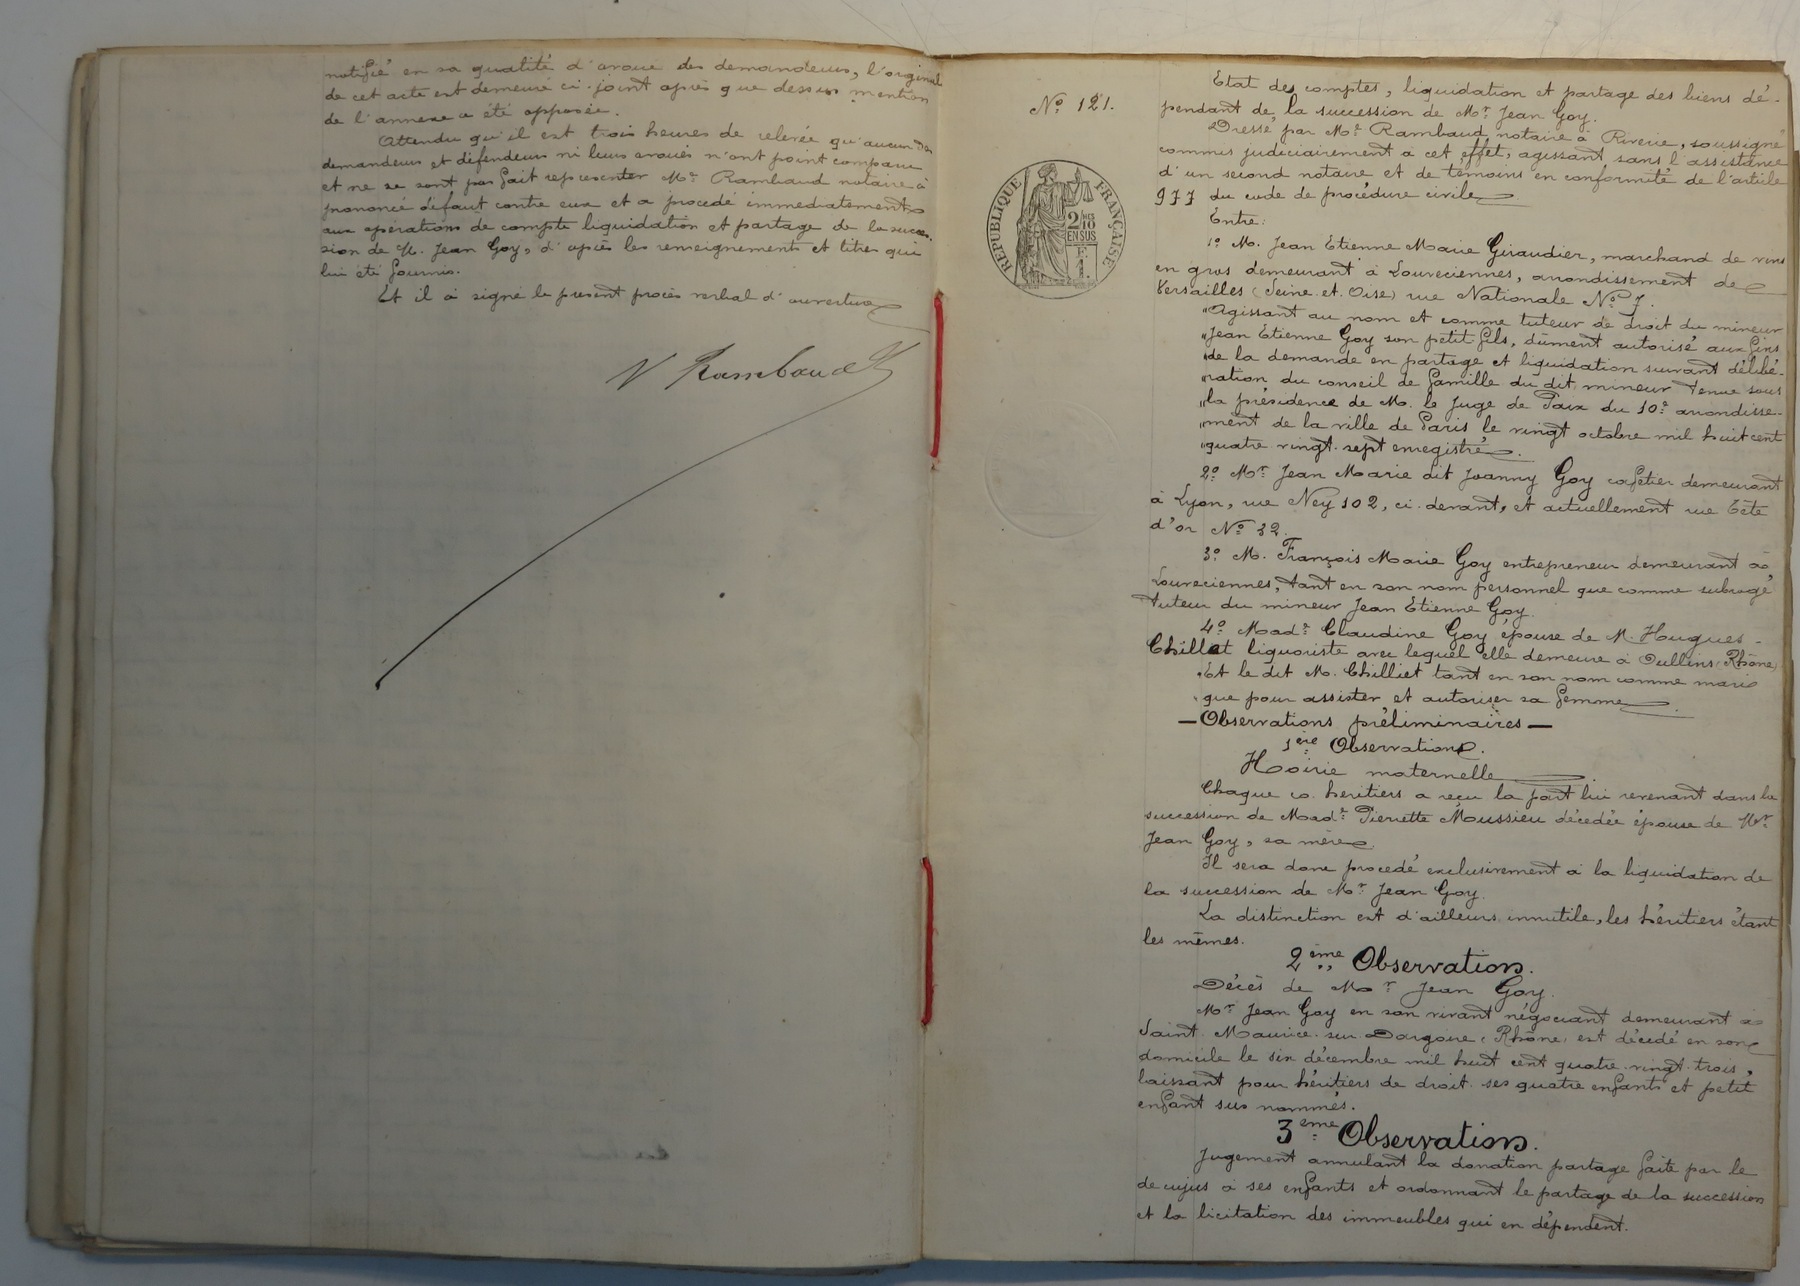 notifié en sa qualité d'avoué des demandeurs, l'original
de cet acte est demeuré ci-joint après que dessus mention
de l'annexe a été apposée.
Attendu qu'il est trois heures de relevée qu'aucun des
demandeurs et défendeurs ni leurs avoués n'ont point comparu
et ne se sont pas fait représenter Me Rambaud notaire à
prononcé défaut contre eux et a procédé immédiatement
aux opérations de compte liquidation et partage de la succes-
sion de M. Jean Goy, d'après les renseignements et titres qui
lui été fournis.
Et il à signé le présent procès verbal d'ouverture
N Rambaud
No 121.
RÉPUBLIQUE FRANÇAISE
2/10MES
EN SUS
F.
1.
Etat des comptes, liquidation et partage des biens dé-
pendant de la succession de Mr Jean Goy.
Dressé par Me Rambaud notaire à Riverie, soussigné
commis judiciairement à cet effet, agissant sans l'assistance
d'un second notaire et de témoins en conformité de l'article
977 du code de procédure civile
Entre:
1o M. Jean Etienne Marie Giraudier, marchand de vins
en gros demeurant à Louveciennes, arrondissement de
Versailles (Seine et Oise) rue Nationale No 7.
"Agissant au nom et comme tuteur de droit du mineur
"Jean Etienne Goy son petit fils, dûment autorisé aux fins
"de la demande en partage et liquidation suivant délibé-
"ration du conseil de famille du dit mineur tenue sous
"la présidence de M. le Juge de Paix du 10e arrondisse-
"ment de la ville de Paris le vingt octobre mil huit cent
"quatre vingt-sept enregistré.
2o Mr Jean Marie dit Joanny Goy cafetier demeurant
à Lyon, rue Ney 102, ci-devant, et actuellement rue Tête
d'or No 32.
3o M. François Marie Goy entrepreneur demeurant à
Louveciennes, tant en son nom personnel que comme subrogé
tuteur du mineur Jean Etienne Goy.
4o Made Claudine Goy épouse de M. Hugues
Chilliet liquoriste avec lequel elle demeure à Oullins (Rhône)
"Et le dit M. Chilliet tant en son nom comme mari
"que pour assister et autoriser sa femme.
— Observations préliminaires —
1ère Observation.
Hoirie maternelle.
Chaque co-héritiers a reçu la part lui revenant dans la
succession de Made Pierrette Moussieu décédée épouse de Mr
Jean Goy, sa mère.
Il sera donc procédé exclusivement à la liquidation de
la succession de Mr Jean Goy.
La distinction est d'ailleurs innutile, les héritiers étant
les mêmes.
2ème Observation.
Décès de Mr Jean Goy.
Mr Jean Goy en son vivant négociant demeurant à
Saint-Maurice-sur-Dargoire (Rhône) est décédé en son
domicile le six décembre mil huit cent quatre-vingt-trois,
laissant pour héritiers de droit ses quatre enfants et petit
enfant sus nommés.
3ème Observation.
Jugement annulant la donation partage faite par le
de cujus à ses enfants et ordonnant le partage de la succession
et la licitation des immeubles qui en dépendent.